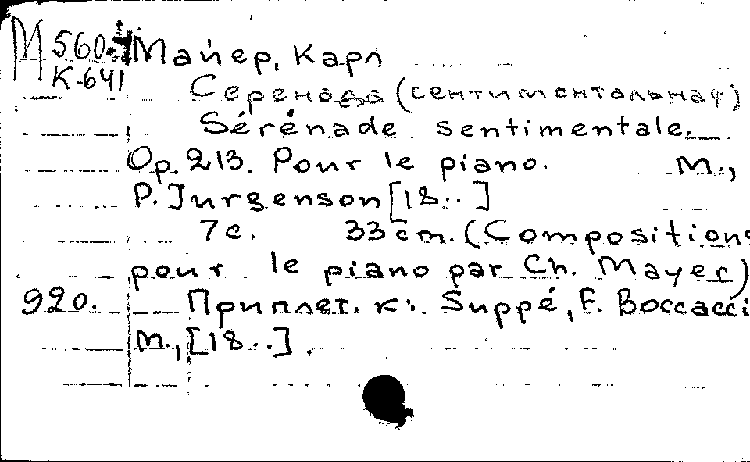 М 560-1 Майер, Карл
К-641
Серенада (сентиментальная)
Sérénade sentimentale.
Op. 213. Pour le piano. М.,
P. Jurgenson [18..]
7 с. 33 cm. (Compositions
pour le piano par Ch. Mayer)
920. Приплет. к: Suppé, F. Boccacci
М., [18..].